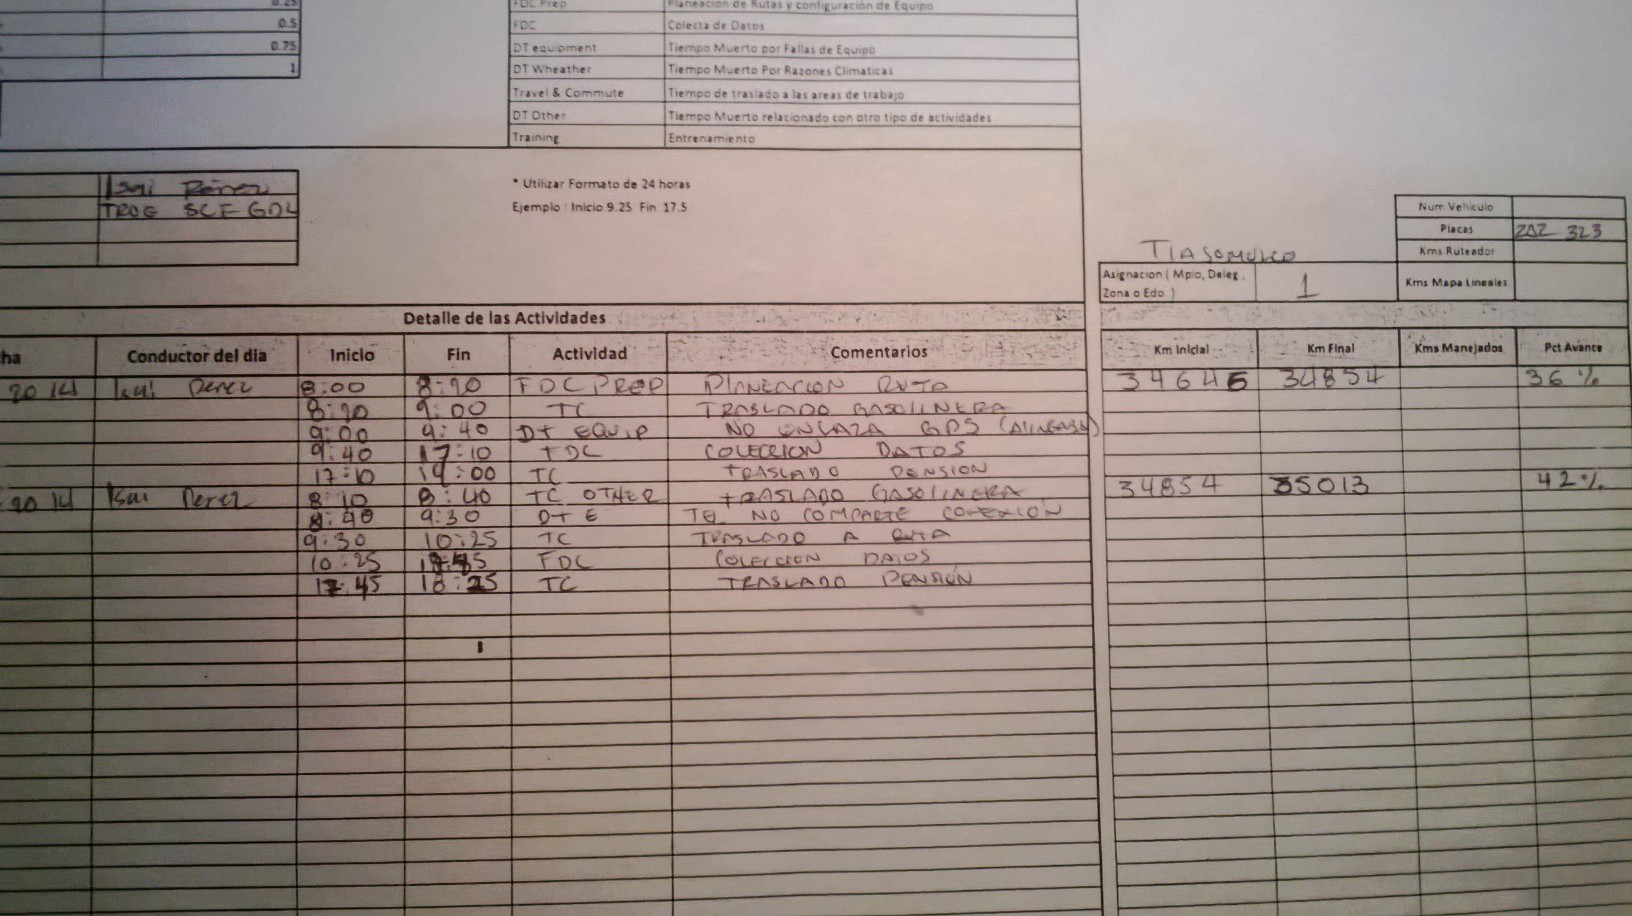 0.25
FDC Prep Planeacion de Rutas y configuración de Equipo
0.5
FDC Colecta de Datos
0.75
DT equipment Tiempo Muerto por Fallas de Equipo
1
DT Wheather Tiempo Muerto Por Razones Climaticas
Travel & Commute Tiempo de traslado a las areas de trabajo
DT Other Tiempo Muerto relacionado con otro tipo de actividades
Training Entrenamiento
Isai Perez
SCE GDL
* Utilizar Formato de 24 horas
Ejemplo : Inicio 9.25 Fin 17.5
Num Vehiculo
Placas 323
Kms Ruteador
Kms Mapa Lineales
TLAJOMULCO
Asignacion ( Mpio, Deleg, 1
Zona o Edo. )
Detalle de las Actividades
ha Conductor del dia Inicio Fin Actividad Comentarios Km Inicial Km Final Kms Manejados Pct Avance
2014 Isai Perez 8:00 FDC PREP PLANEACION RUTA 34645 34854 36%
9:00 TC TRASLADO GASOLINERA
9:00 9:40 DT EQUIP NO ENLAZA GPS
9:40 17:10 FDC COLECCION DATOS
17:10 TC TRASLADO PENSION
2014 Isai Perez 8:10 8:40 TC OTHER TRASLADO GASOLINERA 34854 35013 42%
8:40 9:30 DTE NO COMPARTE CONEXION
9:30 10:25 TC TRASLADO A RUTA
10:25 FDC COLECCION DATOS
17:45 18:25 TC TRASLADO PENSION